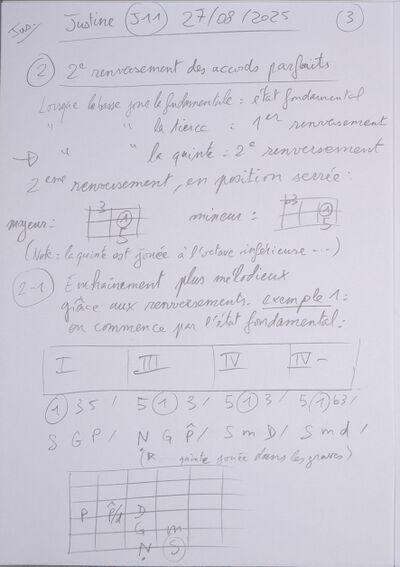 Jus. Justine J11 27/08/2025 3
2 2e renversement des accords parfaits
Lorsque la basse joue la fondamentale = état fondamental
" " la tierce = 1er renversement
→ " " la quinte = 2e renversement
2eme renversement, en position serrée :
majeur : 3 1 5 mineur : b3 1 5
(Note : la quinte est jouée à l'octave inférieure ...)
2-1 Entraînement plus mélodieux
grâce aux renversements. exemple 1 :
on commence par l'état fondamental :
I III IV IV-
1 3 5 / 5 1 3 / 5 1 3 / 5 1 b3 /
S G P / N G P̂ / S m D / S m d /
quinte jouée dans les graves)
P P̂/d D
G m
N S